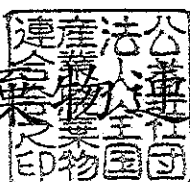 公益社団
法人全国
産業廃棄物
連合会之印